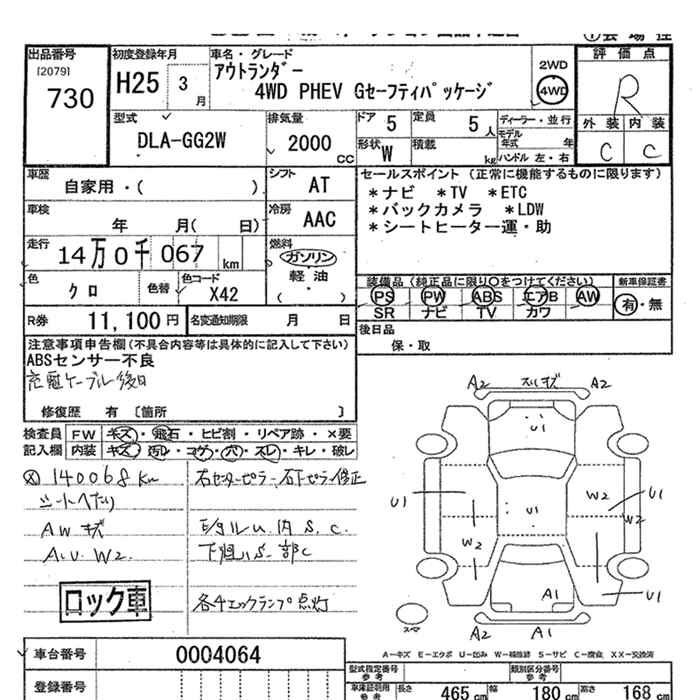 出品番号
[2079]
730
初度登録年月
H25 3月
車名・グレード
アウトランダー
4WD PHEV Gセーフティパッケージ
2WD
4WD
評価点
R
外装 内装
C C
型式
DLA-GG2W
排気量
2000 CC
ドア 5
定員 5人
形状 W
積載 kg
ディーラー・並行
モデル年式 年
ハンドル 左・右
車歴
自家用・( )
シフト
AT
車検
年 月( 日)
冷房
AAC
走行
14万0千067 km
燃料
ガソリン
軽油
( )
色
クロ
色替
色コード
X42
R券
11,100円
名変通知期限 月 日
セールスポイント (正常に機能するものに限ります)
*ナビ *TV *ETC
*バックカメラ *LDW
*シートヒーター運・助
装備品 (純正品に限り〇をつけてください)
新車保証書
PS PW ABS エアB AW
SR ナビ TV カワ
有・無
後日品
保・取
注意事項申告欄(不具合内容等は具体的に記入して下さい)
ABSセンサー不良
充電ケーブル後日
修復歴 有 〔箇所 〕
検査員記入欄
FW キズ・飛石・ヒビ割・リペア跡・×要
内装 キズ・汚レ・コゲ・穴・スレ・キレ・破レ
140068km
シートへたり
AWキズ
A.U.W2
ロック車
右センターピラー、右下ピラー修正
下廻りS.部C
各4エックランプ点灯
A2 スルキズ A2
U1
U1
W2
U1
W2
U1
W2
W2
A1
U1
A2 A1
スペア
A-キズ E-エクボ U-凹み W-補修跡 S-サビ C-腐食 XX-交換済
車台番号
0004064
登録番号
型式指定番号
参考
類別区分番号
参考
車庫証明用
参考
長さ 465 cm
幅 180 cm
高さ 168 cm